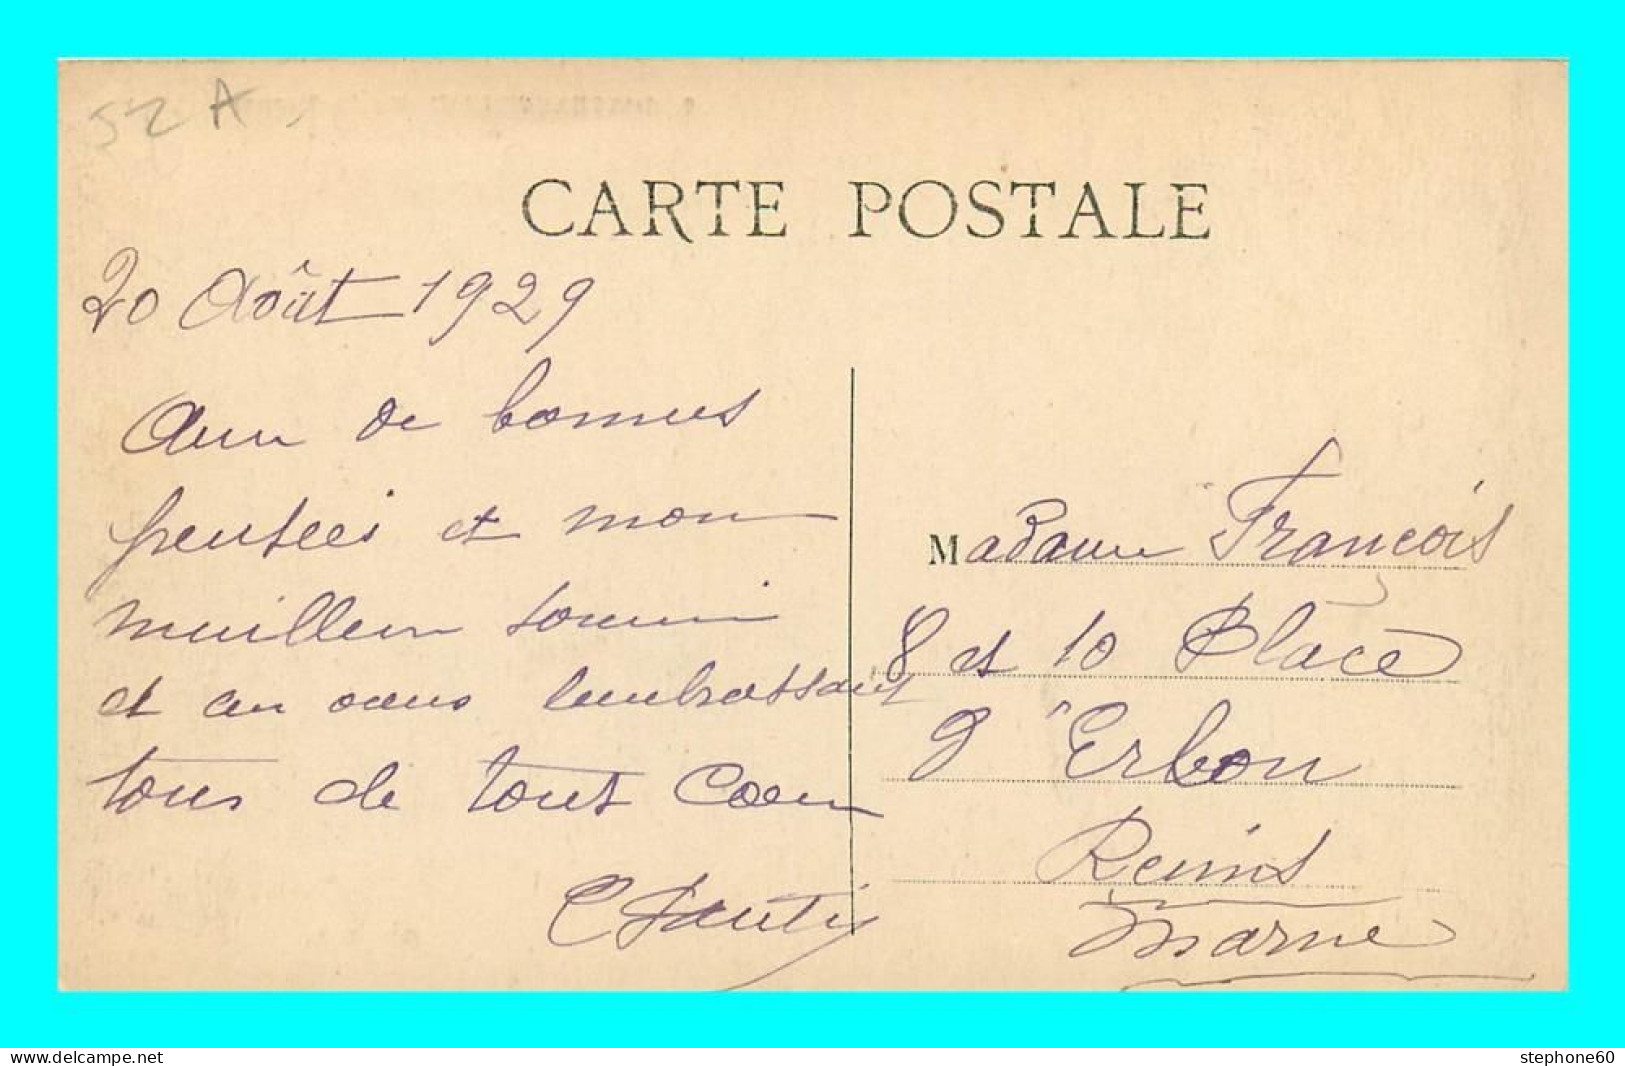 52 A
CARTE POSTALE
20 Août 1929
Avec de bonnes
pensées et mon
meilleur souvenir
et en vous embrassant
tous de tout Coeur
Madame François
8 et 10 Place
d'Erlon
Reims
Marne
stephone60